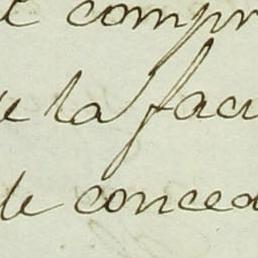 e compr
e la facu
de conced